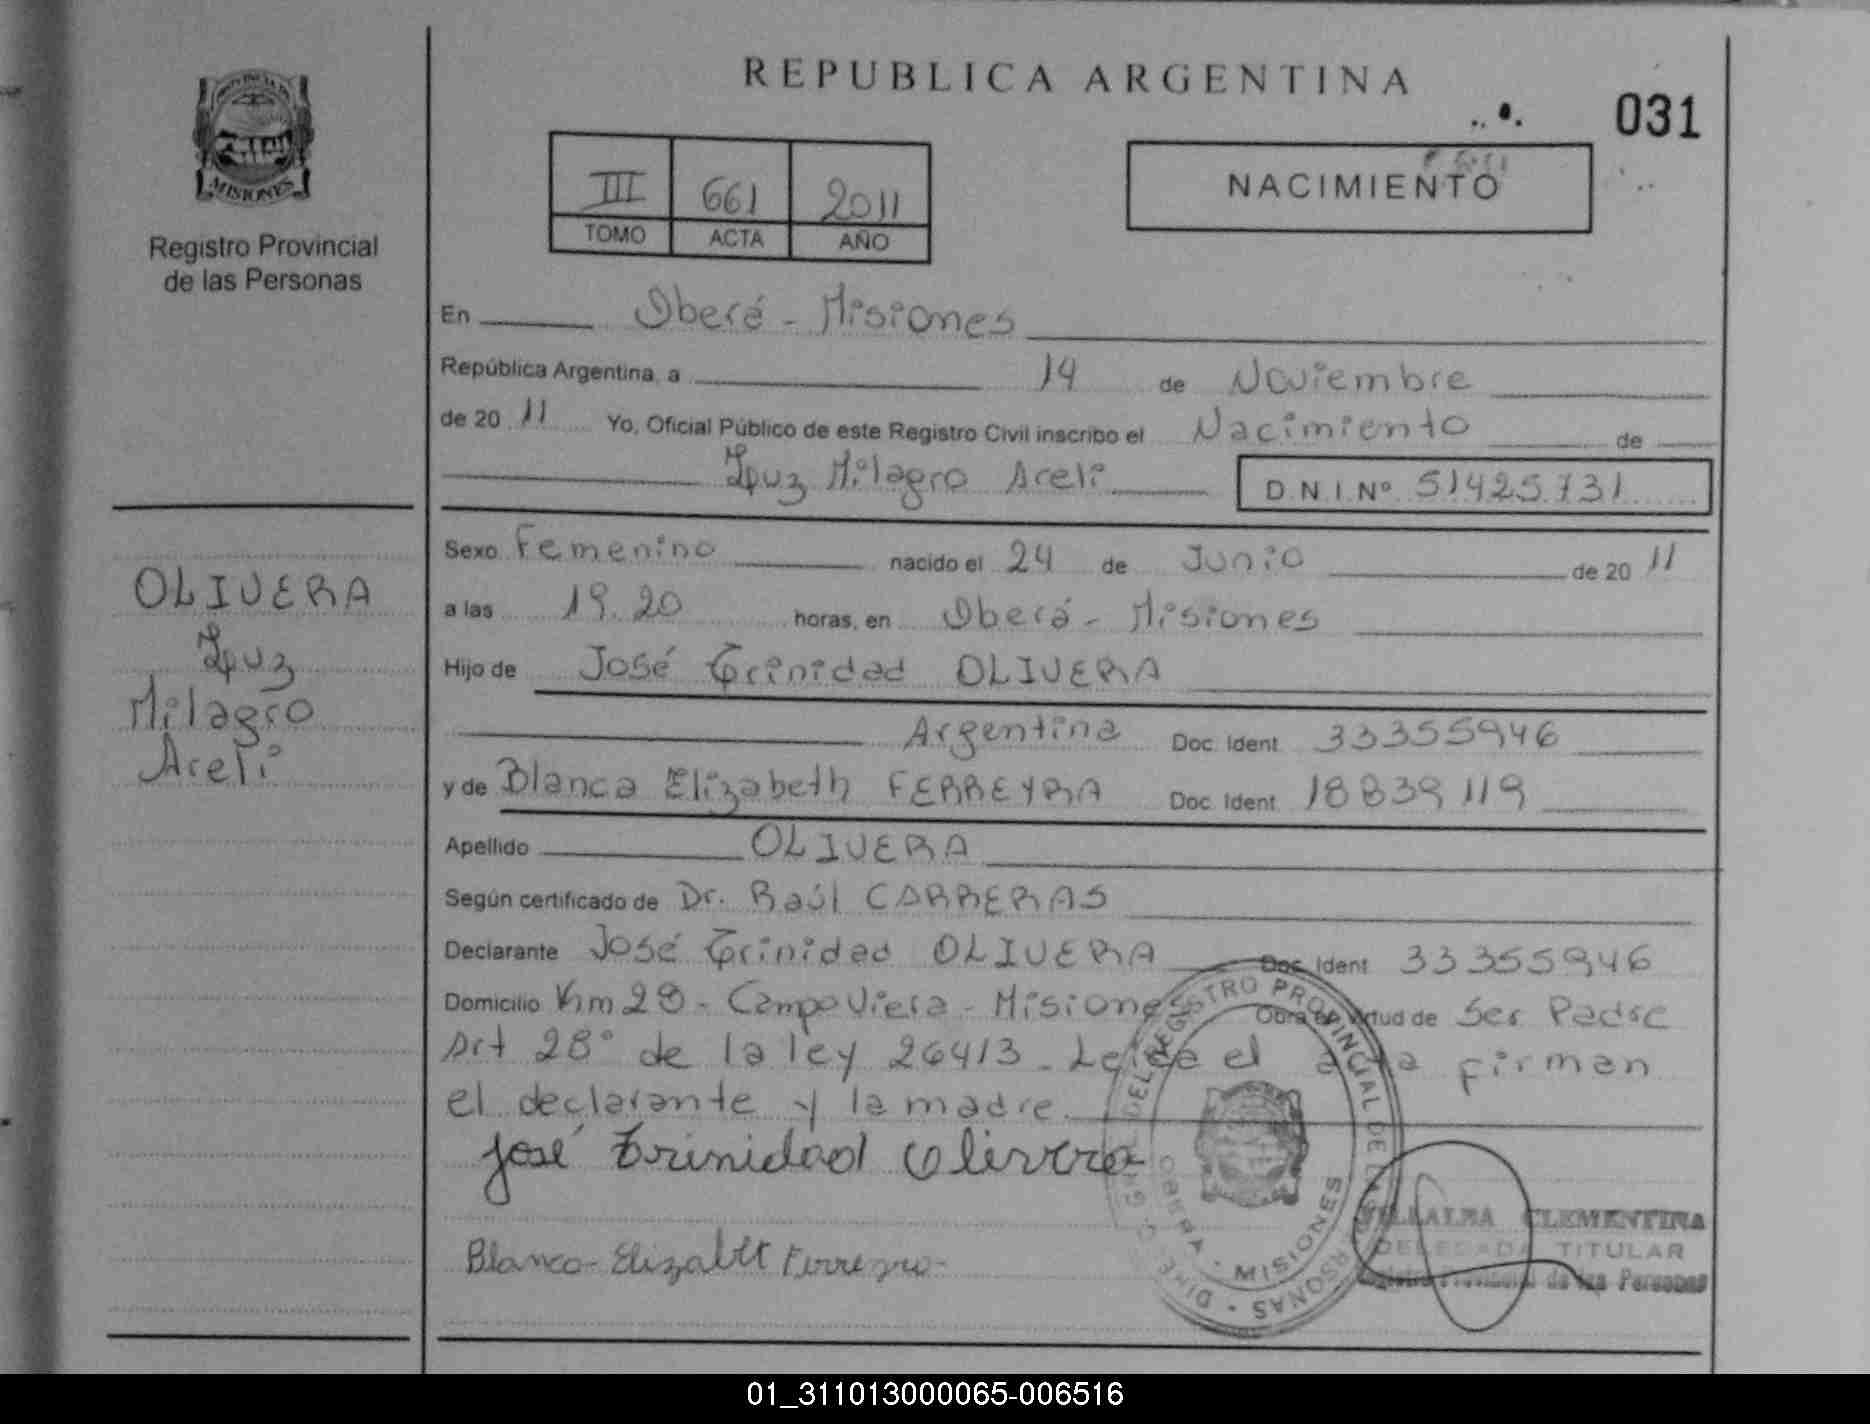 REPUBLICA ARGENTINA
031
PROVINCIA DE
MISIONES
Registro Provincial
de las Personas
III 661 2011
TOMO ACTA AÑO
NACIMIENTO
En Oberá - Misiones
República Argentina, a 14 de Noviembre
de 20 11 Yo, Oficial Público de este Registro Civil inscribo el Nacimiento de
Luz Milagro Areli D.N.I.Nº 51425731
Sexo Femenino nacido el 24 de Junio de 20 11
a las 19.20 horas, en Oberá - Misiones
Hijo de José Trinidad OLIVERA
Argentina Doc. Ident. 33355946
y de Blanca Elizabeth FERREYRA Doc. Ident. 18839119
Apellido OLIVERA
Según certificado de Dr. Raúl CARRERAS
Declarante José Trinidad OLIVERA Doc. Ident. 33355946
Domicilio Km 28 - Campo Viera - Misiones Obra en virtud de Ser Padre
Art 28° de la ley 26413 - Leída el acta firman
el declarante y la madre.
José Trinidad Olivera
Blanca Elizabet Ferreyra
OLIVERA
Luz
Milagro
Areli
REGISTRO PROVINCIAL DE LAS PERSONAS
OBERA - MISIONES
VILLALBA CLEMENTINA
DELEGADA TITULAR
Registro Provincial de las Personas
01_311013000065-006516